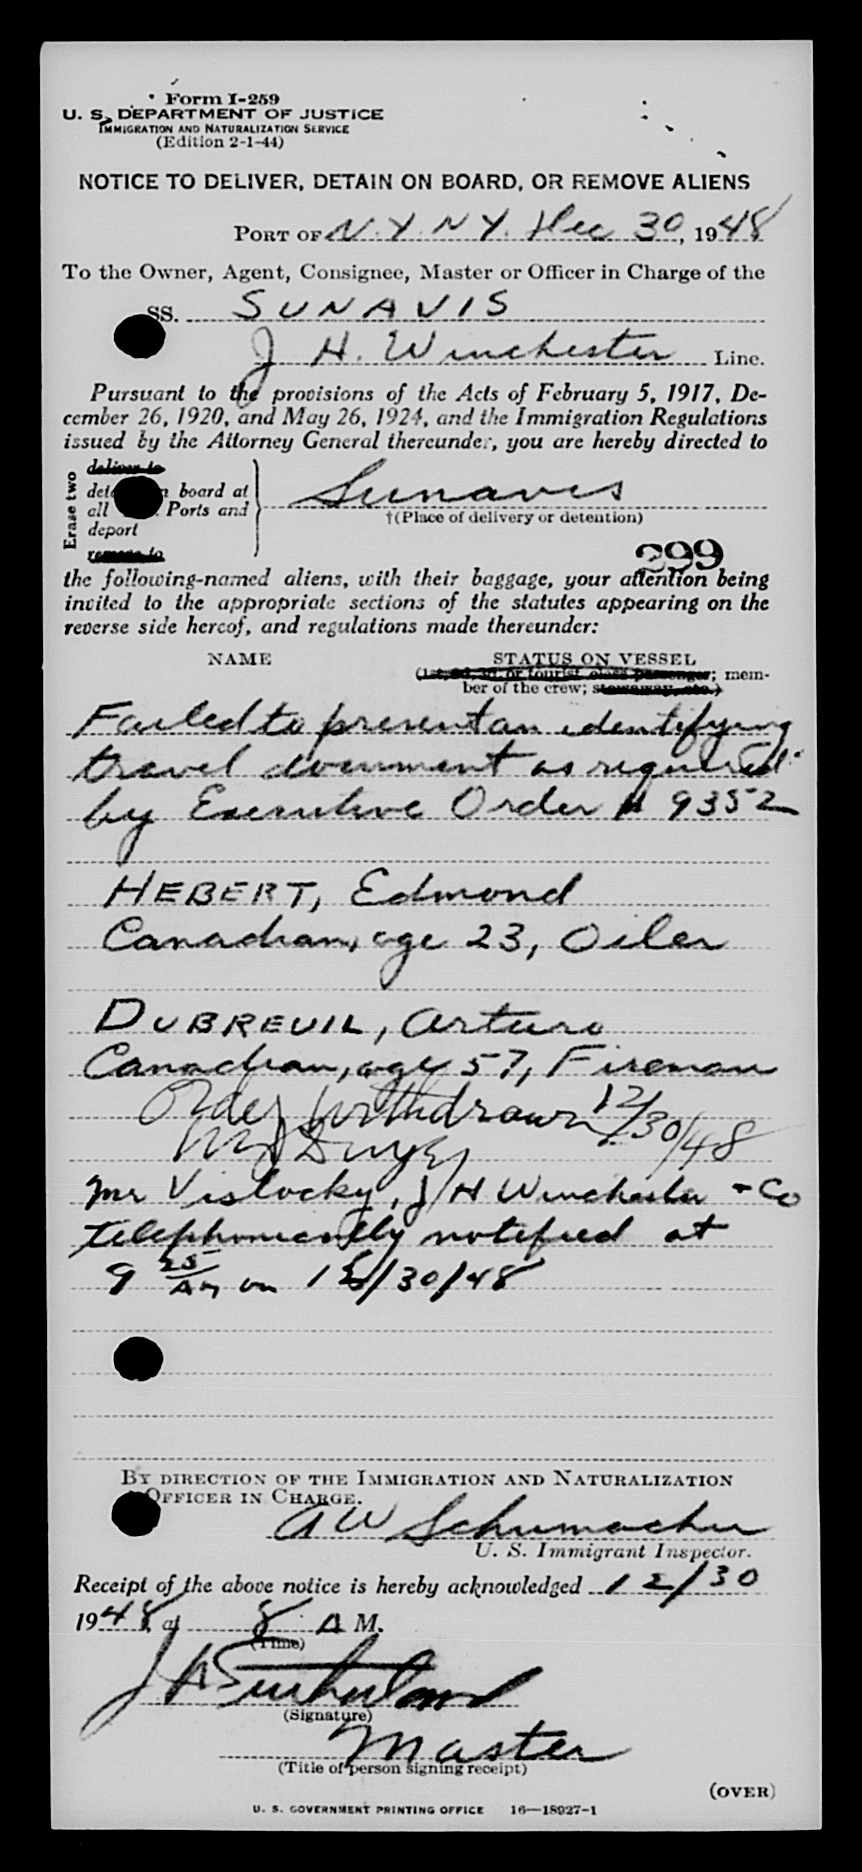 Form I-259
U. S. DEPARTMENT OF JUSTICE
IMMIGRATION AND NATURALIZATION SERVICE
(Edition 2-1-44)
NOTICE TO DELIVER, DETAIN ON BOARD, OR REMOVE ALIENS
PORT OF N.Y. N Y. Dec 30, 1948
To the Owner, Agent, Consignee, Master or Officer in Charge of the
SS. SUNAVIS
J H. Winchester Line.
Pursuant to the provisions of the Acts of February 5, 1917, De-
cember 26, 1920, and May 26, 1924, and the Immigration Regulations
issued by the Attorney General thereunder, you are hereby directed to
Erase two
deliver to
board at
all Ports and
deport
remove to
Sunavis
†(Place of delivery or detention)
299
the following-named aliens, with their baggage, your attention being
invited to the appropriate sections of the statutes appearing on the
reverse side hereof, and regulations made thereunder:
NAME STATUS ON VESSEL
(1st, 2d, 3d, or tourist class passenger; mem-
ber of the crew; stowaway, etc.)
Failed to present an identifying
travel document as required
by Executive Order # 9352
HEBERT, Edmond
Canadian, age 23, Oiler
DUBREUIL, Arturo
Canadian, age 57, Fireman
Order Withdrawn 12/30/48
Mr Vislocky, J H Winchester + Co
telephonically notified at
9 25 AM on 12/30/48
BY DIRECTION OF THE IMMIGRATION AND NATURALIZATION
OFFICER IN CHARGE.
A W Schumacher
U. S. Immigrant Inspector.
Receipt of the above notice is hereby acknowledged 12/30
1948, at 8 A M.
(Time)
J A Sutherland
(Signature)
Master
(Title of person signing receipt)
(OVER)
U. S. GOVERNMENT PRINTING OFFICE 16—18927-1